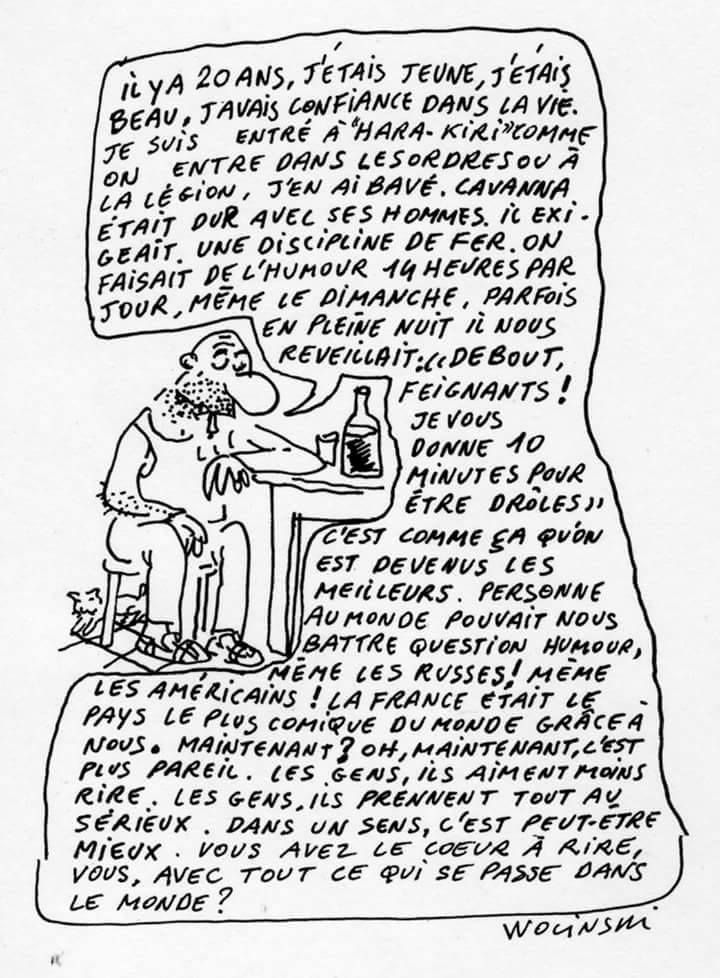 iL Y A 20 ANS, J'ÉTAIS JEUNE, J'ÉTAIS
BEAU, J'AVAIS CONFIANCE DANS LA VIE.
JE SUIS ENTRÉ À "HARA-KIRI" COMME
ON ENTRE DANS LES ORDRES OU À
LA LÉGION, J'EN AI BAVÉ. CAVANNA
ÉTAIT DUR AVEC SES HOMMES. iL EXI-
GEAIT. UNE DISCIPLINE DE FER. ON
FAISAIT DE L'HUMOUR 14 HEURES PAR
JOUR, MÊME LE DIMANCHE, PARFOIS
EN PLEINE NUIT iL NOUS
REVEILLAIT: «DEBOUT,
FEIGNANTS!
JE VOUS
DONNE 10
MINUTES POUR
ÊTRE DRÔLES»
C'EST COMME ÇA QU'ON
EST DEVENUS LES
MEILLEURS. PERSONNE
AU MONDE POUVAIT NOUS
BATTRE QUESTION HUMOUR,
MÊME LES RUSSES! MÊME
LES AMÉRICAINS! LA FRANCE ÉTAIT LE
PAYS LE PLUS COMIQUE DU MONDE GRÂCE À
NOUS. MAINTENANT? OH, MAINTENANT, C'EST
PLUS PAREIL. LES GENS, ILS AIMENT MOINS
RIRE. LES GENS, ILS PRENNENT TOUT AU
SÉRIEUX. DANS UN SENS, C'EST PEUT-ÊTRE
MIEUX. VOUS AVEZ LE COEUR À RIRE,
VOUS, AVEC TOUT CE QUI SE PASSE DANS
LE MONDE?
WOLINSKI